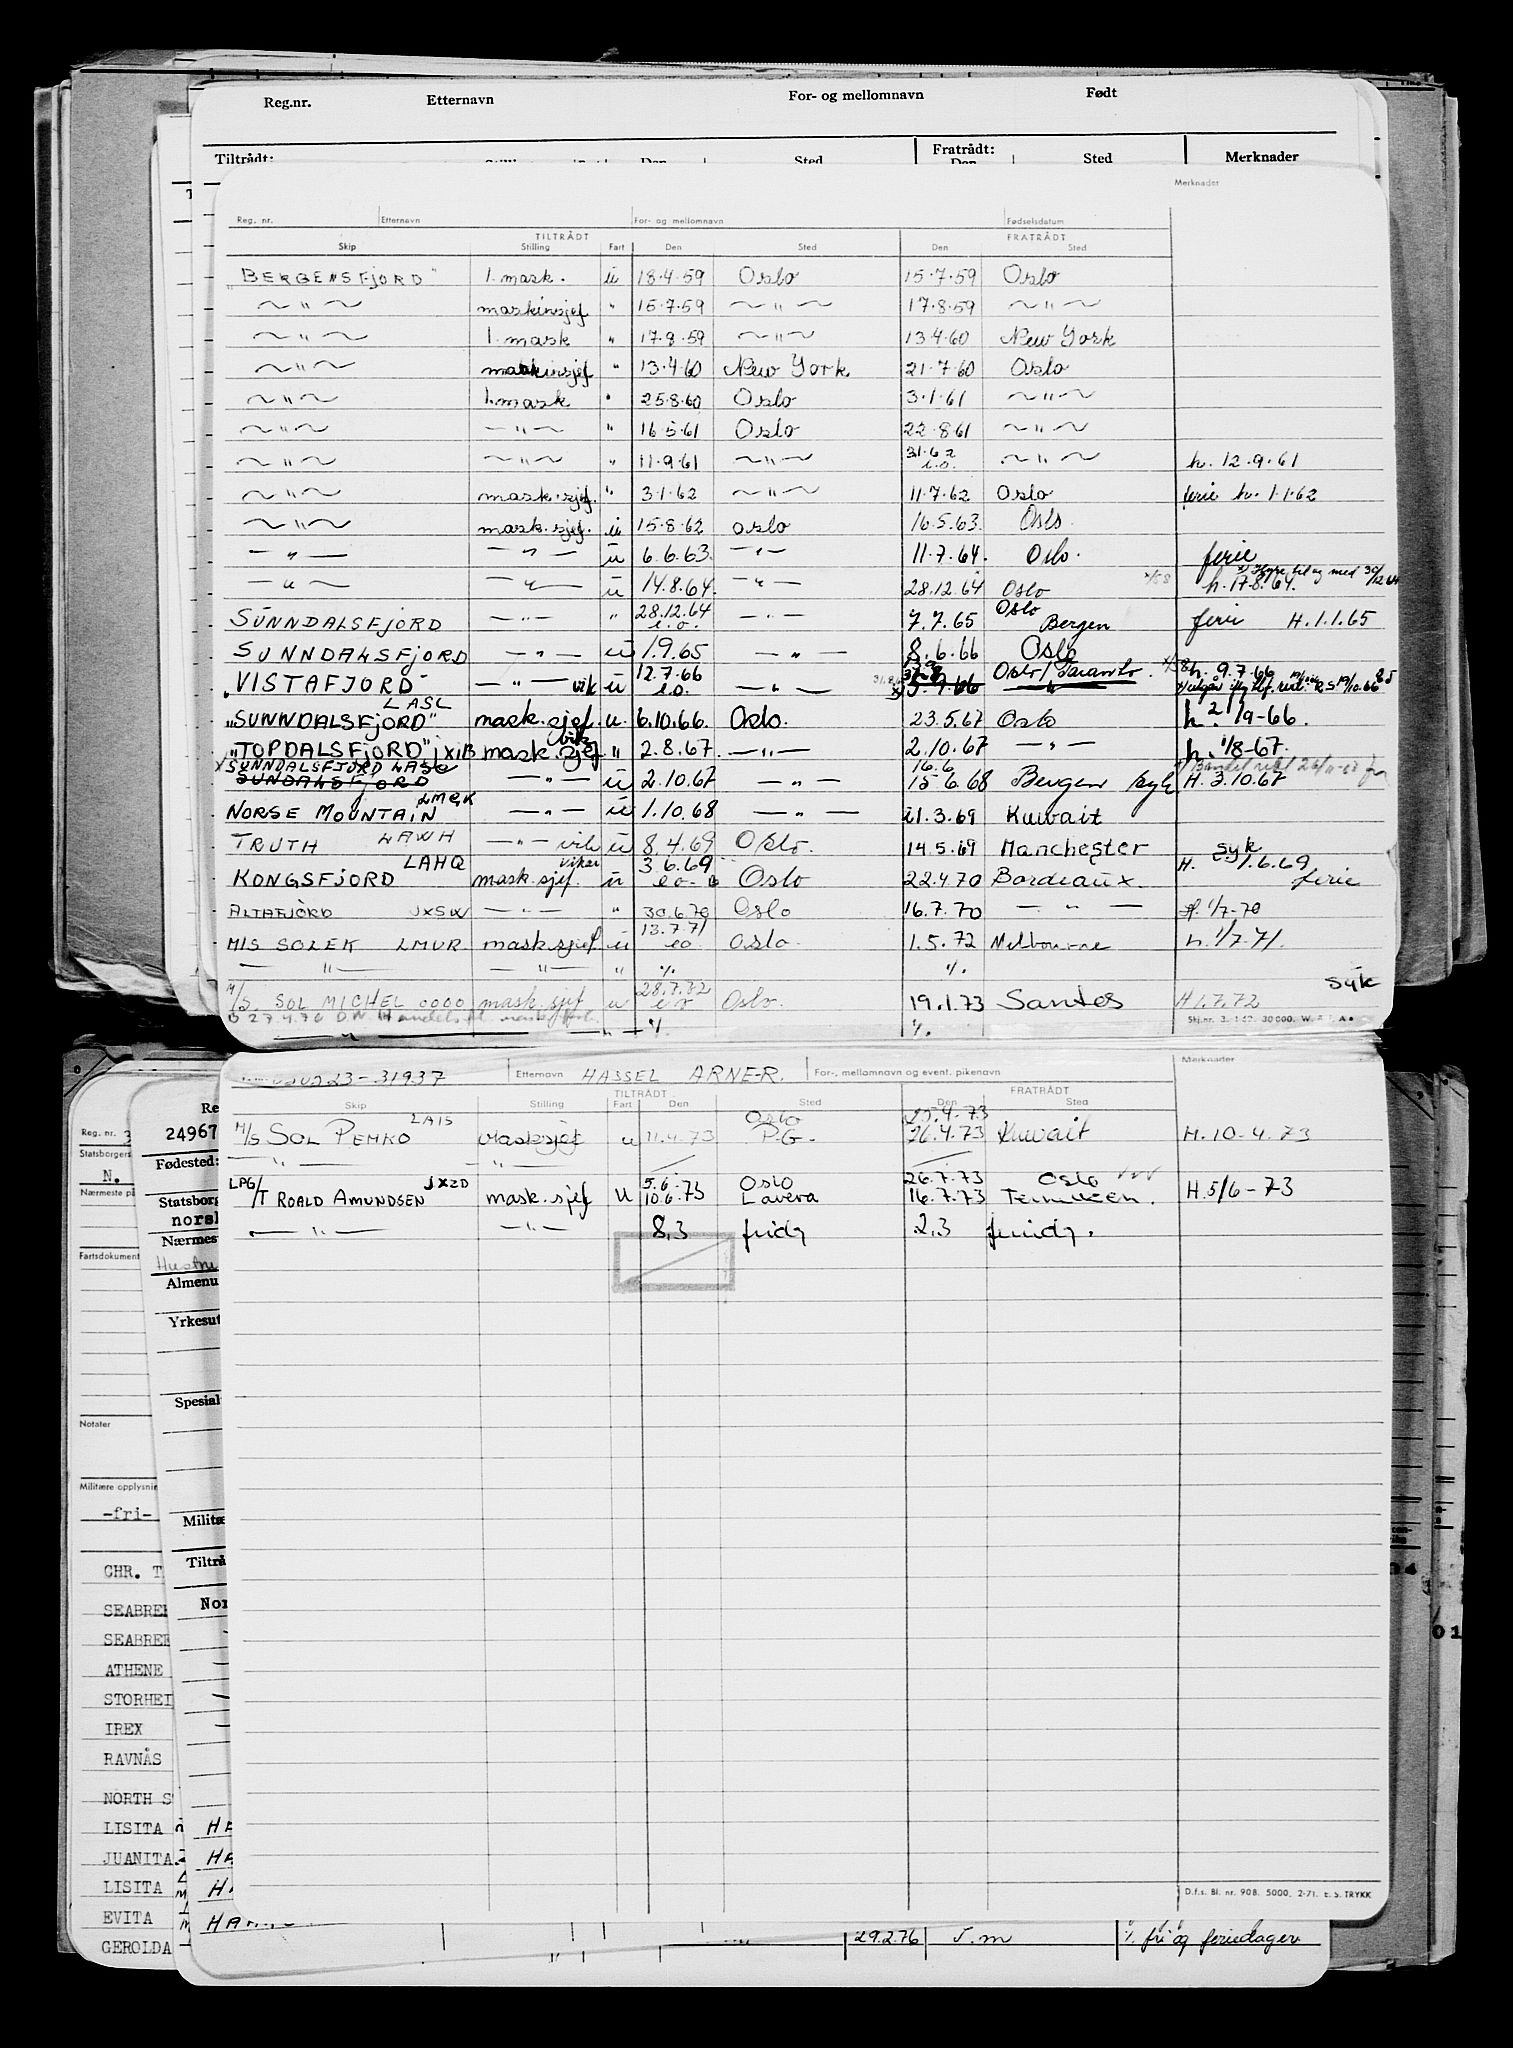 Reg.nr. Etternavn For- og mellomnavn Født
Tiltrådt: Sted Fratrådt: Sted Merknader
Merknader
Reg. nr. Etternavn For- og mellomnavn Fødselsdatum
TILTRÅDT FRATRÅDT
Skip Stilling Fart Den Sted Den Sted
"BERGENSFJORD" 1. mask. u 18.4.59 Oslo 15.7.59 Oslo
~ " ~ maskinsjef " 15.7.59 ~ " ~ 17.8.59 ~ " ~
~ " ~ 1. mask " 17.8.59 ~ " ~ 13.4.60 New York
~ " ~ maskinsjef " 13.4.60 New York 21.7.60 Oslo
~ " ~ 1. mask " 25.8.60 Oslo 3.1.61 ~ " ~
~ " ~ ~ " ~ " 16.5.61 Oslo 22.8.61 ~ " ~
~ " ~ ~ " ~ " 11.9.61 ~ " ~ 3.1.62 e.o. ~ " ~ h. 12.9.61
~ " ~ mask.sjef. " 3.1.62 ~ " ~ 11.7.62 Oslo ferie h. 1.1.62
~ " ~ mask.sjef. u 15.8.62 oslo 16.5.63. Oslo.
— " — — " — u 6.6.63. — " — 11.7.64. Oslo. ferie
— " — — " — u 14.8.64. — " — 28.12.64 Oslo h. 17.8.64.
SUNNDALSFJORD — " — " 28.12.64 e.o. — " — 7.7.65 Oslo Bergen ferie H.1.1.65
SUNNDALSFJORD — " — u 1.9.65 — " — 8.6.66 Oslo
"VISTAFJORD" — " — vik u 12.7.66 e.o. — " — 5.9.66 Oslo/Taranto h. 9.7.66
LASL
"SUNNDALSFJORD" mask.sjef. u. 6.10.66. Oslo. 23.5.67 Oslo h. 2/9-66.
"TOPDALSFJORD" JXIB mask.sjef vik " 2.8.67. — " — 2.10.67 — " — h. 1/8-67.
x SUNNDALSFJORD LASL
SUNDALSFJORD — " — u 2.10.67 — " — 16.6 15 6.68 Bergen syk H. 3.10.67
NORSE MOUNTAIN LMGK — " — u 1.10.68 — " — 21.3.69 Kuwait
TRUTH LAWH — " — vik u 8.4.69 Oslo. 14.5.69 Manchester syk
KONGSFJORD LAHQ mask.sjef. vikar u 3.6.69 eo- Oslo 22.4.70 Bordeaux. H. 1.6.69 ferie
ALTAFJORD JXSW — " — " 30.6.70 Oslo 16.7.70 — " — H. 1/7-70
M/S SOLEK LMUR mask.sjef. u 13.7.71 eo. Oslo. 1.5.72 Melbourne h. 1/7.71.
— " — — " — " % %
M/S. SOL MICHEL 0000 mask.sjef u 28.7.72 e.o Oslo. 19.1.73 Santos H1.7.72 syk
— " — % %
Skj.nr. 3. 1-62. 30 000. W.
23-31937 Etternavn HASSEL ARNE-R. For-, mellomnavn og event. pikenavn Merknader
TILTRÅDT FRATRÅDT
Skip Stilling Fart Den Sted Den Sted
M/S SOL PEMKO LAIS Masksjef u 11.4.73 Oslo P.G. 25.4.73 26.4.73 Kuwait H.10-4.73
— " — — " —
LPG/T ROALD AMUNDSEN JXZD mask.sjef u 5.6- 10.6.73 Oslo Lavera 26.7.73 16.7.73 Oslo H.5/6-73
— " — — " — 8,3 fridg 2,3 feridg.
D.f.s. Bl. nr. 908. 5000. 2-71. E.S. TRYKK
Reg. nr. 3
Statsborgers
N.
Nærmeste på
Fartsdokument
Notater
Militære opplysnin
-fri-
CHR. T
SEABREE
SEABREE
ATHENE
STORHEI
IREX
RAVNÅS
NORTH S
LISITA
JUANITA
LISITA
EVITA
GEROLDA
Re
24967
Fødested:
Statsborg
norsk
Nærmest
Hustru
Almenu
Yrkesut
Spesial
Militæ
Tiltrå
Nor
HA
HA
29.2.76 S.m % fri og feriedager
01